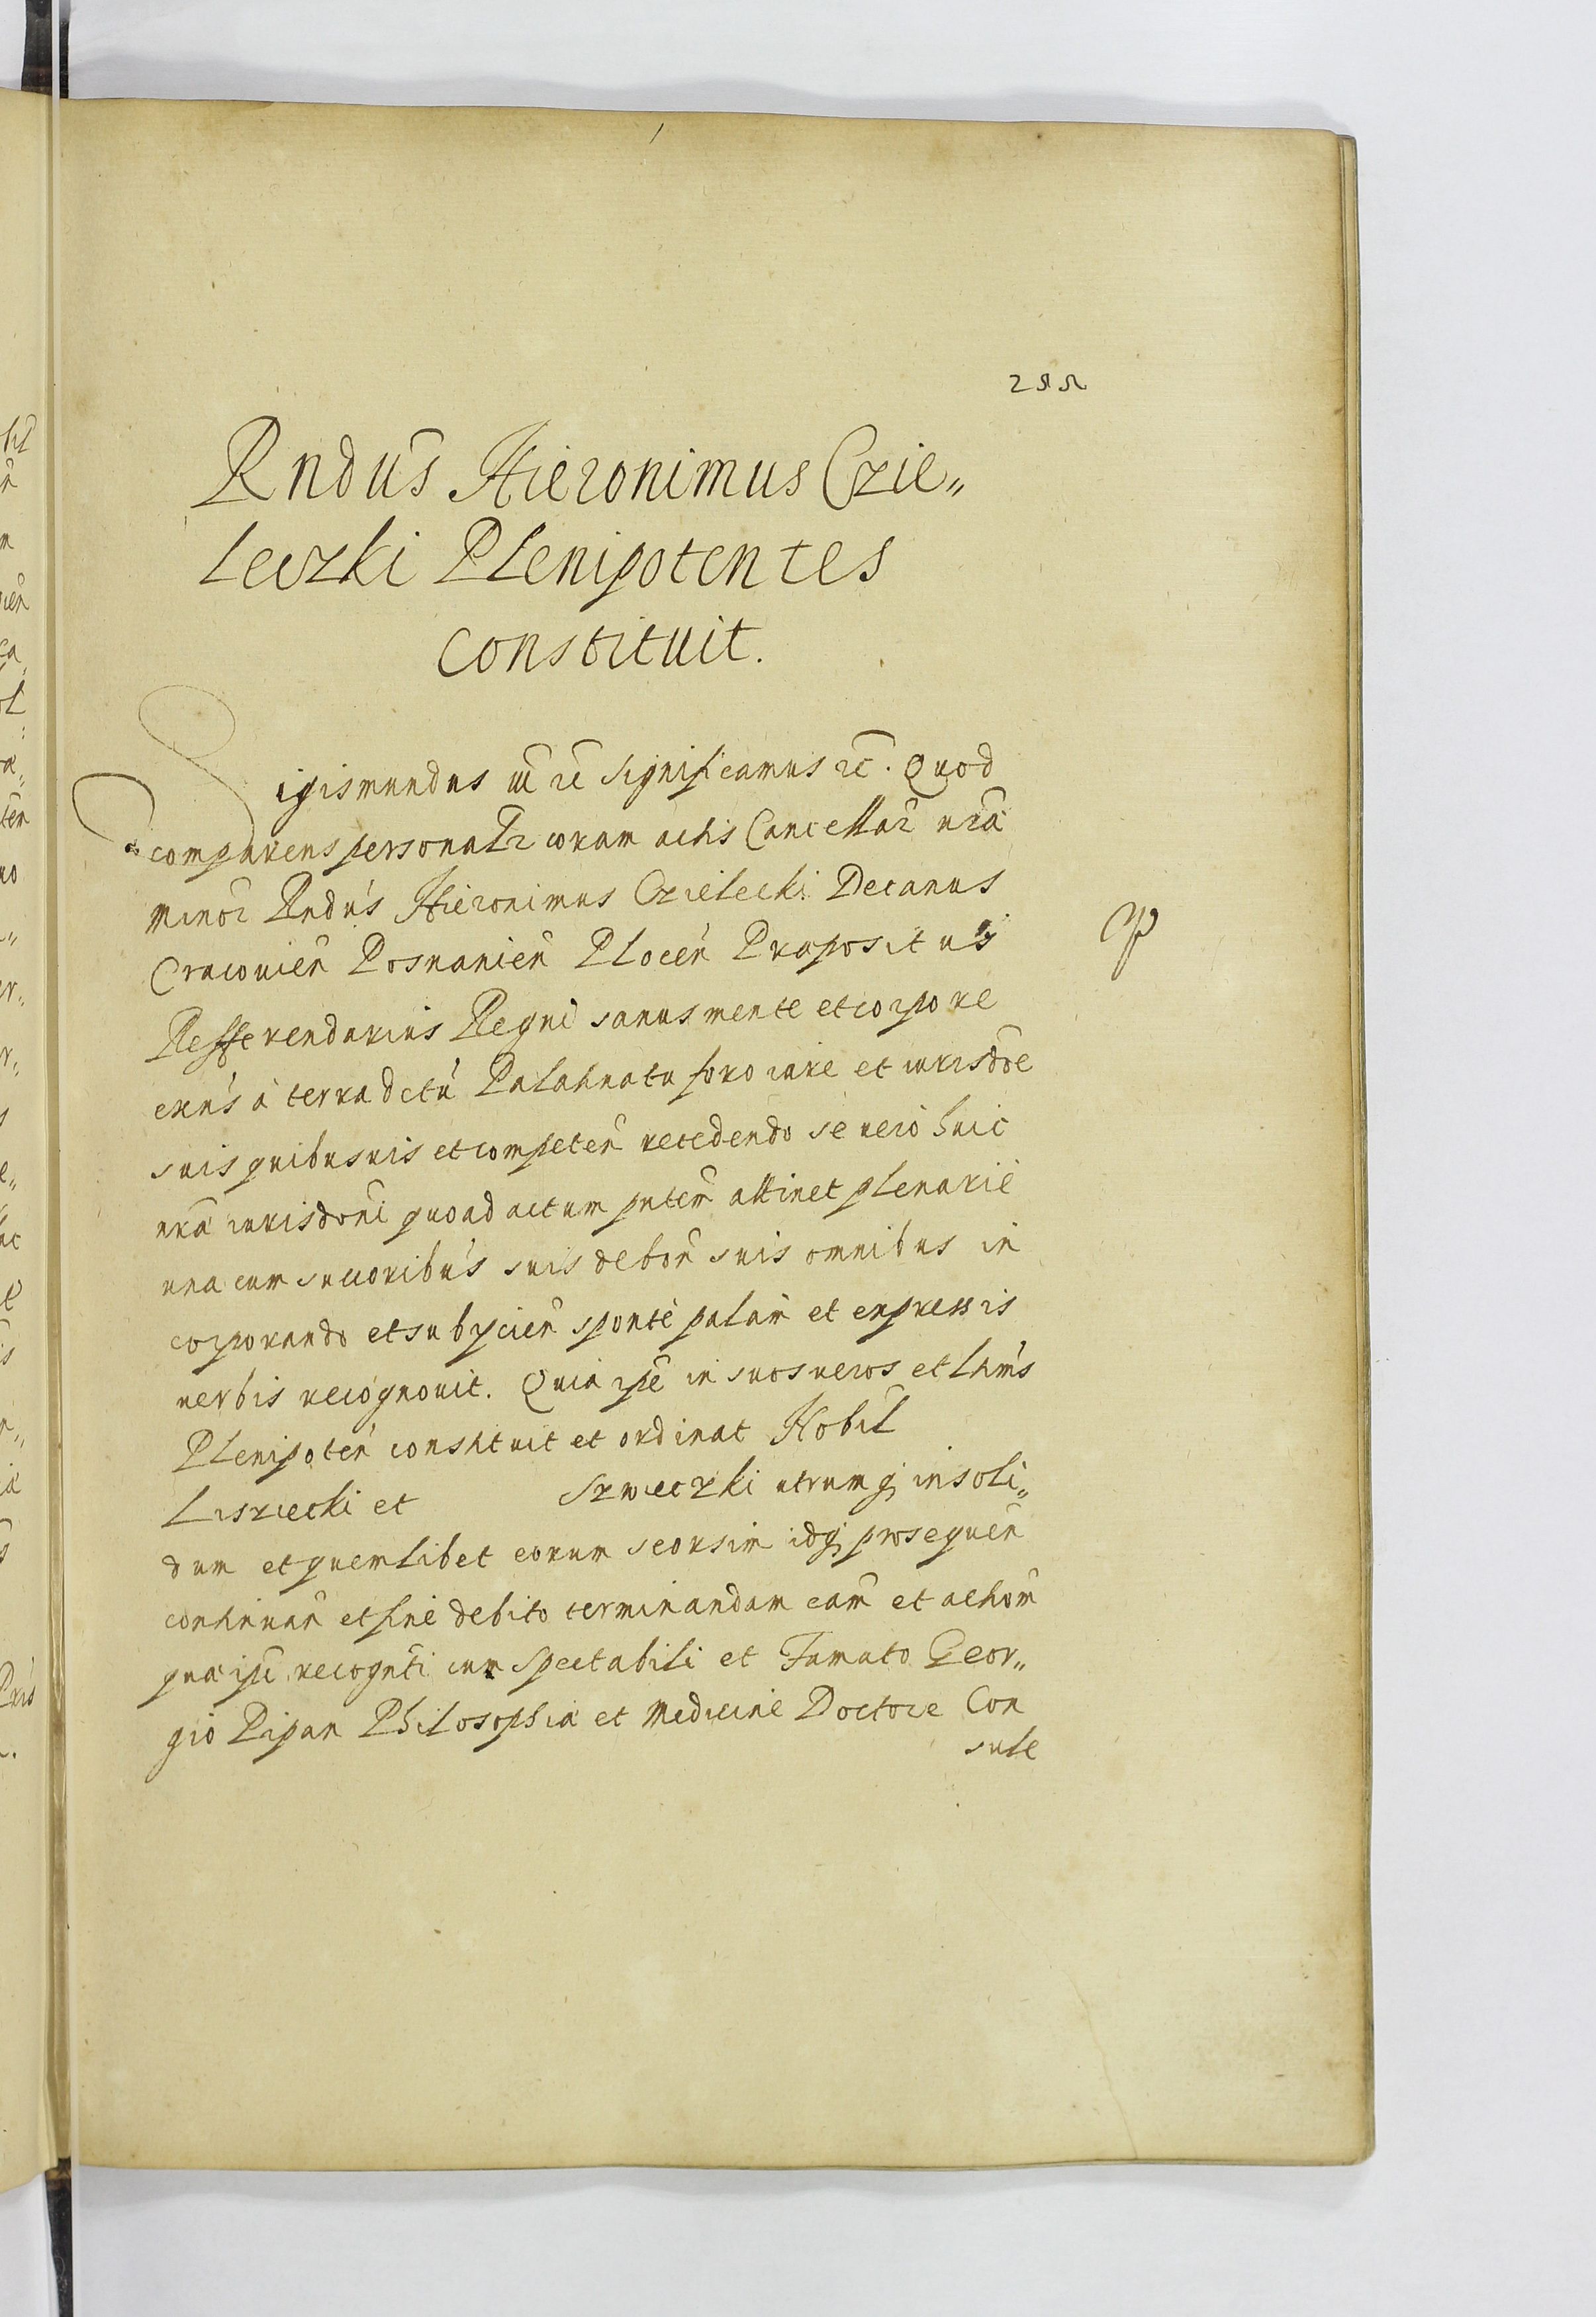 255
Rndus Hieronimus Czie„
leczki Plenipotentes
constituit.
Sigismundus iii rc Significamus rc. Quod
comparens personalr coram actis Cancellar nrã
minor Rndus Hieronimus Czielecki Decanus
Cracouien Posnanien Plocen Præpositus
Refferendarius Regni sanus mente et corpore
exns à terra dctũ Palatinatu foro iure et iurisdõe
suis quibusuis et competen recedendo se verò huic
nrã iurisdoni quo ad actum pntem attinet plenariè
una cum succoribus suis de bon suis omnibus in
corporando et subycien spontè palam et expressis
verbis recognouit. Quia ipe in suos veros et lttmos
Plenipoten constituit et ordinat Nobil
Lisziecki et Szwieczki utrumq insoli„
dum et quemlibet eorum seorsim idq prosequen
continuan et fine debito terminandam cam et action
quã ipe recognti cum Spectabili et Famato Geor„
gio Pipan Philosophiæ et Medicinę Doctore Con
sule